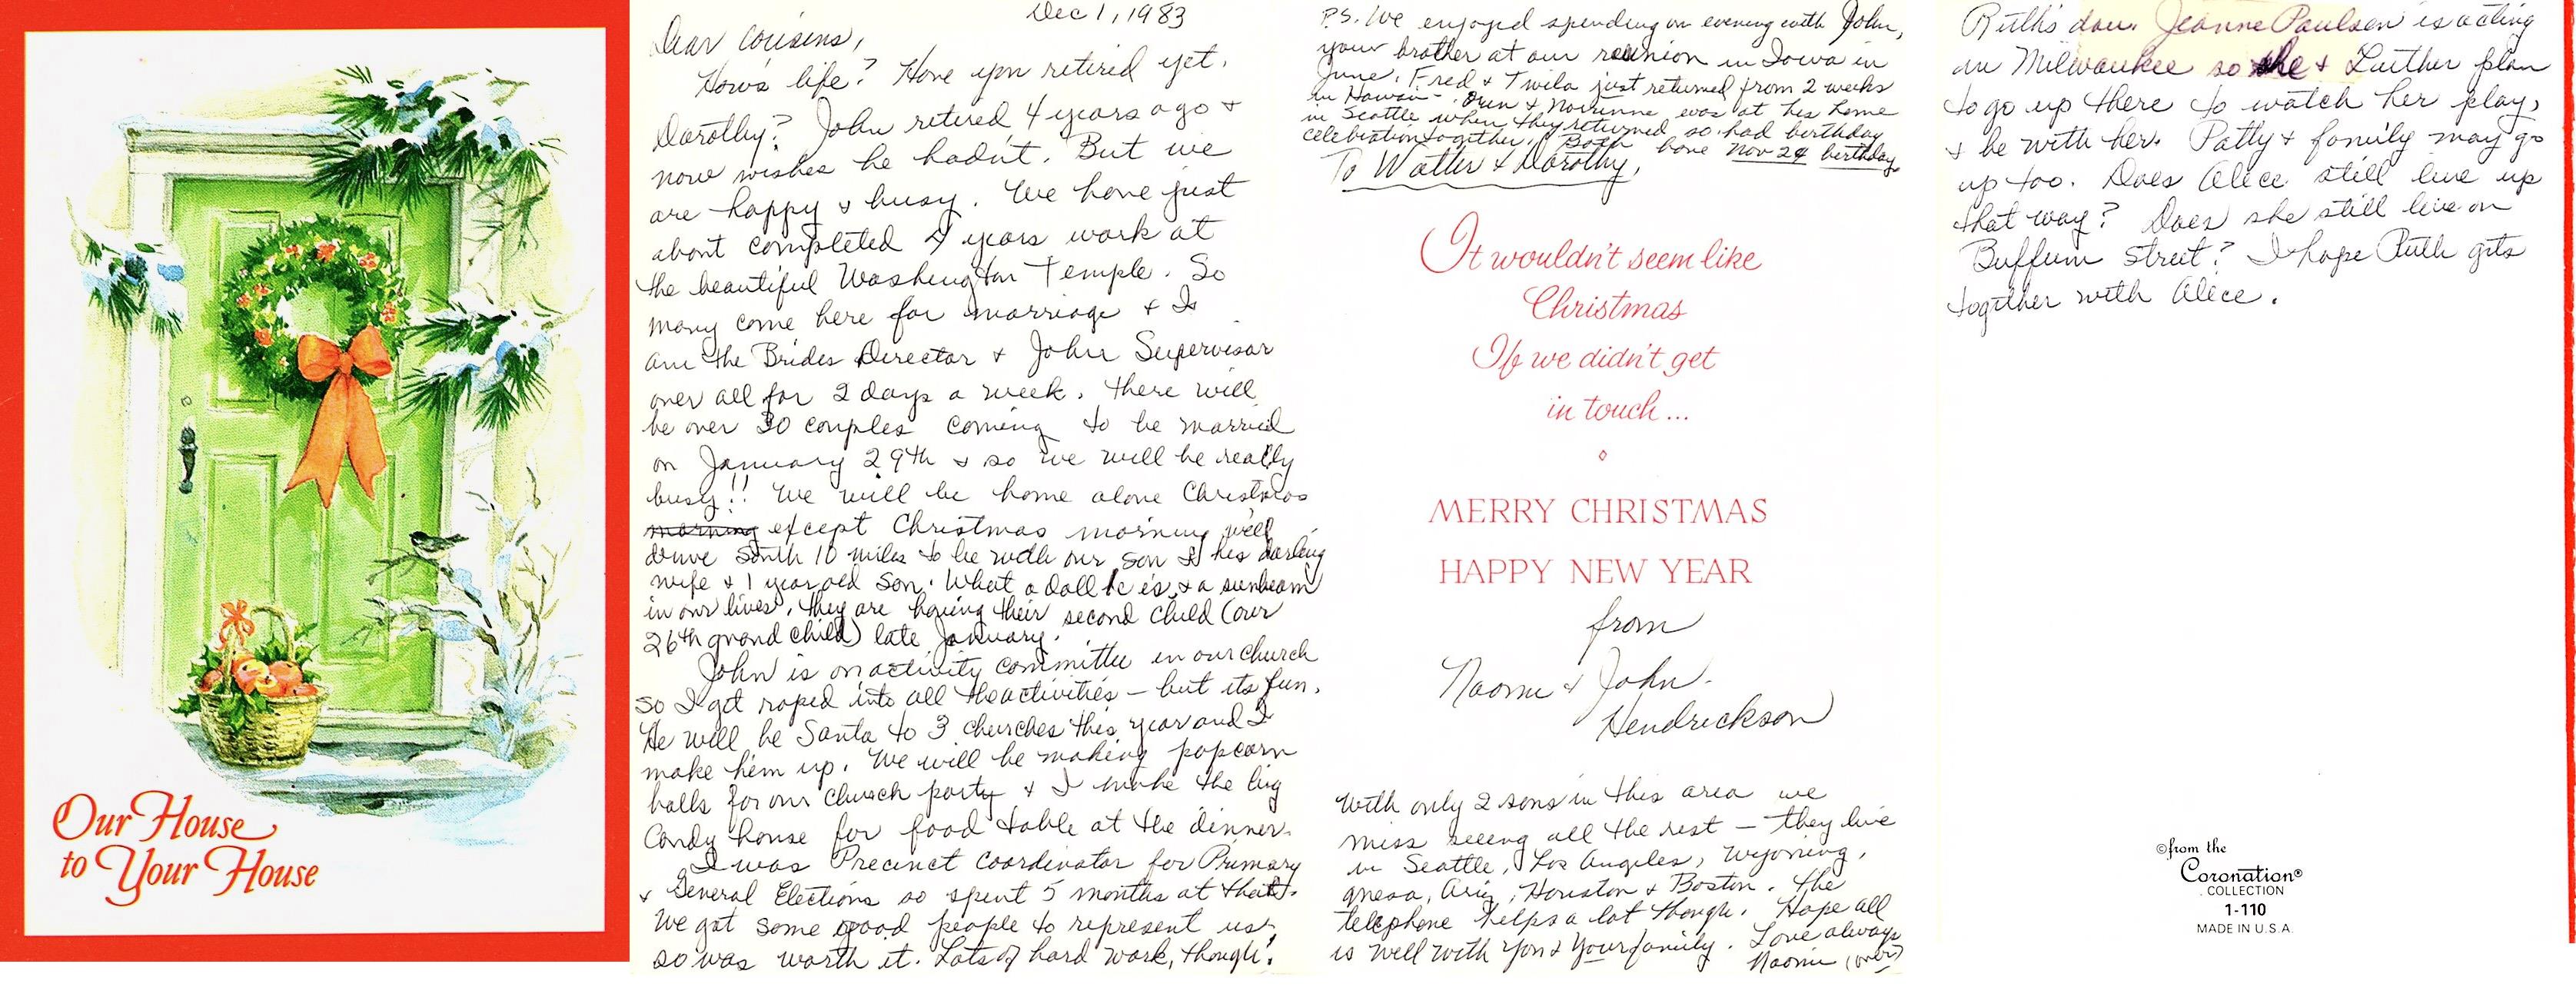 Our House
to Your House
Dec 1, 1983
Dear Cousins,
How's life? Have you retired yet,
Dorothy? John retired 4 years ago &
now wishes he hadn't. But we
are happy & busy. We have just
about completed 4 years work at
the beautiful Washington Temple. So
many come here for marriage & I
am the Brides Director & John Supervisor
over all for 2 days a week. There will
be over 30 couples coming to be married
on January 29th & so we will be really
busy!! We will be home alone Christmas
morning except Christmas morning we'll
drive South 10 miles to be with our son & his darling
wife & 1 year old son. What a doll he is, & a sunbeam
in our lives. They are having their second child (our
26th grand child) late January.
John is on activity committee in our church
so I get roped into all the activities - but its fun.
He will be Santa to 3 churches this year and I
make him up. We will be making popcorn
balls for our church party & I make the big
Candy house for food table at the dinner.
I was Precinct Coordinator for Primary
& General Elections so spent 5 months at that.
We got some good people to represent us
so was worth it. Lots of hard work, though!
P.S. We enjoyed spending an evening with John,
your brother at our reunion in Iowa in
June. Fred & Twila just returned from 2 weeks
in Hawaii - & was at his home
in Seattle when they returned so had birthday
celebration together. Both have Nov 24 birthday
To Walter & Dorothy,
It wouldn't seem like
Christmas
If we didn't get
in touch...
MERRY CHRISTMAS
HAPPY NEW YEAR
from
Naomi & John
Hendrickson
With only 2 sons in this area we
miss seeing all the rest - they live
in Seattle, Los Angeles, Wyoming,
Mesa, Ariz, Houston & Boston. The
telephone helps a lot though. Hope all
is well with you & your family. Love always
Naomi (over)
Ruth's dau. Jeanne Paulsen is acting
in Milwaukee so she & Luther plan
to go up there to watch her play,
& be with her. Patty & family may go
up too. Does Alice still live up
that way? Does she still live on
Buffum Street? I hope Ruth gets
together with Alice.
©from the
Coronation®
COLLECTION
1-110
MADE IN U.S.A.